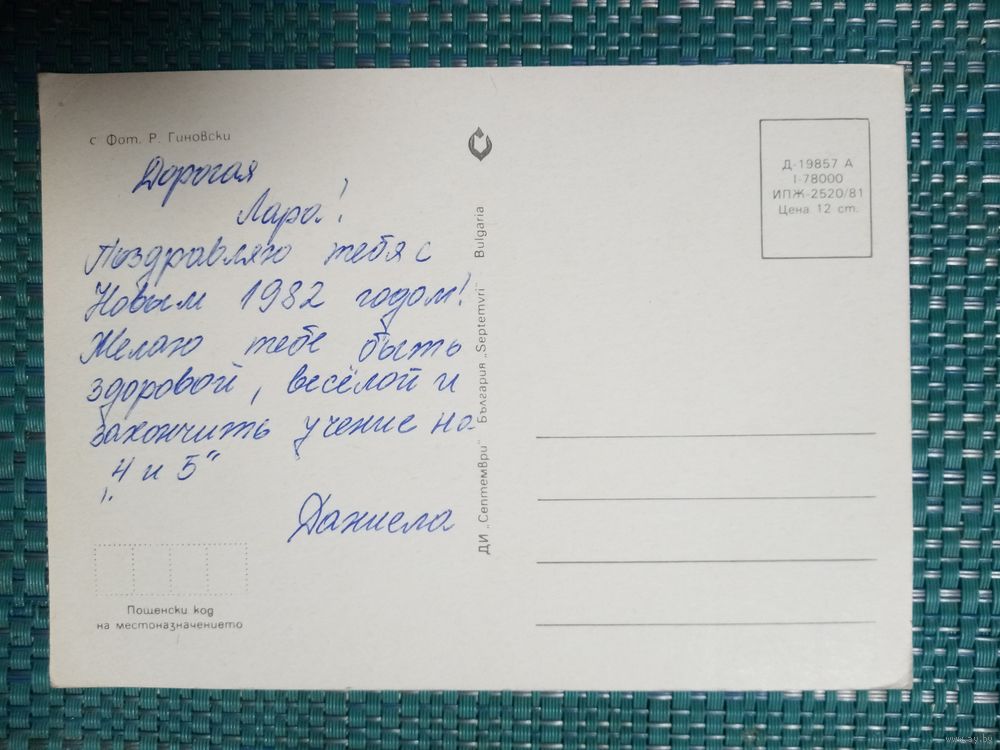 с Фот. Р. Гиновски
Дорогая
Лара!
Поздравляю тебя с
Новым 1982 годом!
Желаю тебе быть
здоровой, весёлой и
закончить учение на
„4 и 5“
Даниела
Пощенски код
на местоназначението
ДИ „Септември“ България „Septemvri“ Bulgaria
Д-19857 А
I-78000
ИПЖ-2520/81
Цена 12 ст.
www.ay.by